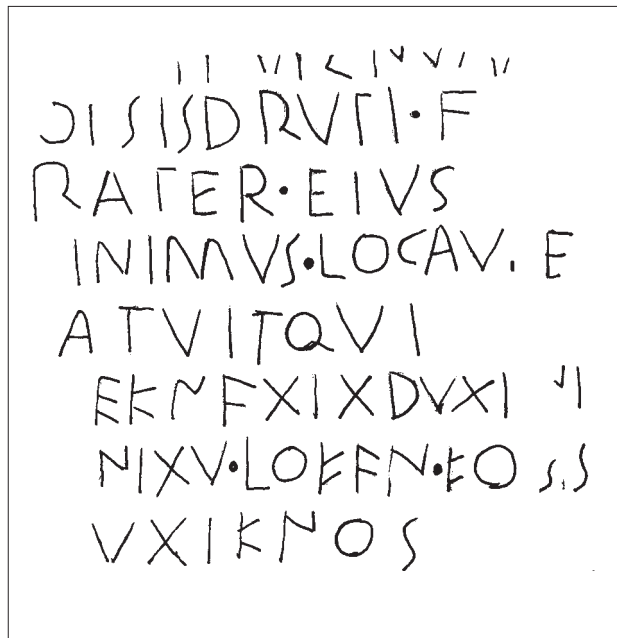 ƆISISDRVTI·F
RATER·EIVS
INIMVS·LOCAV. E
ATVITQVI
EKNFXIXDVXI
NIXV·LOKFN·KO S.S
VXIKNOS